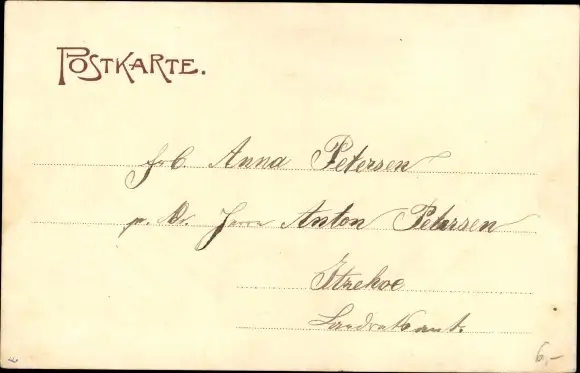 POSTKARTE.
Frl. Anna Petersen
p. Adr. Herrn Anton Petersen
Itzehoe
6,-